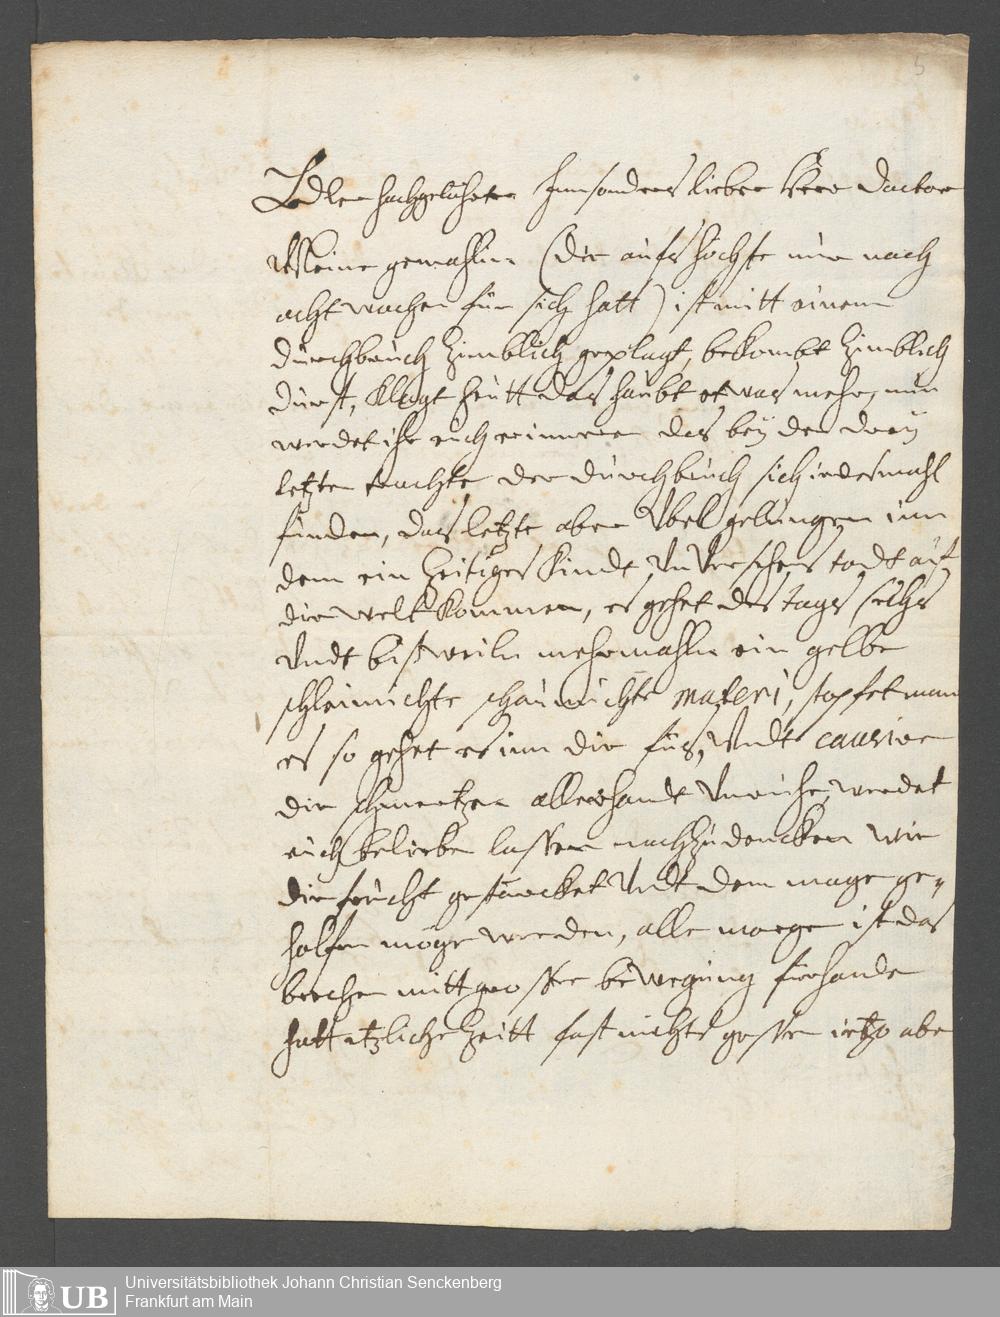 5
Edler hochgelahrter Innsonders lieber Herr Doctor
Meine gemahlin (die aufs höchste nur noch
acht wochen für sich hatt) ist mitt einem
durchbruch zimblich geplagt, bekombt zimblich
durst, klagt heutt das haubt etwas mehr, nun
werdet ihr euch erinneren das bey den drey
letzten trachte der durchbruch sich iedesmahl
funden, das letzte aber Vbel gelungen inn
dem ein Zeitiges kindt Vnversehens todt auf
die welt kommen, es gehet des tags sechs
Vndt bisweiln mehrmahln ein gelbe
schleimichte schaumichte materi, stopfet man
es so gehet es inn die füs, Vndt causire
die schmertzen allerhandt Vnruhe, werdet
euch belieben lassen nachzudencken wie
die frucht gestärcket Vndt dem mage ge-
holfen möge werden, alle morge ist das
brechen mitt grosser bewegung fürhande
hatt etzliche Zeitt fast nichts gessen ietzo abe
UB
Universitätsbibliothek Johann Christian Senckenberg
Frankfurt am Main